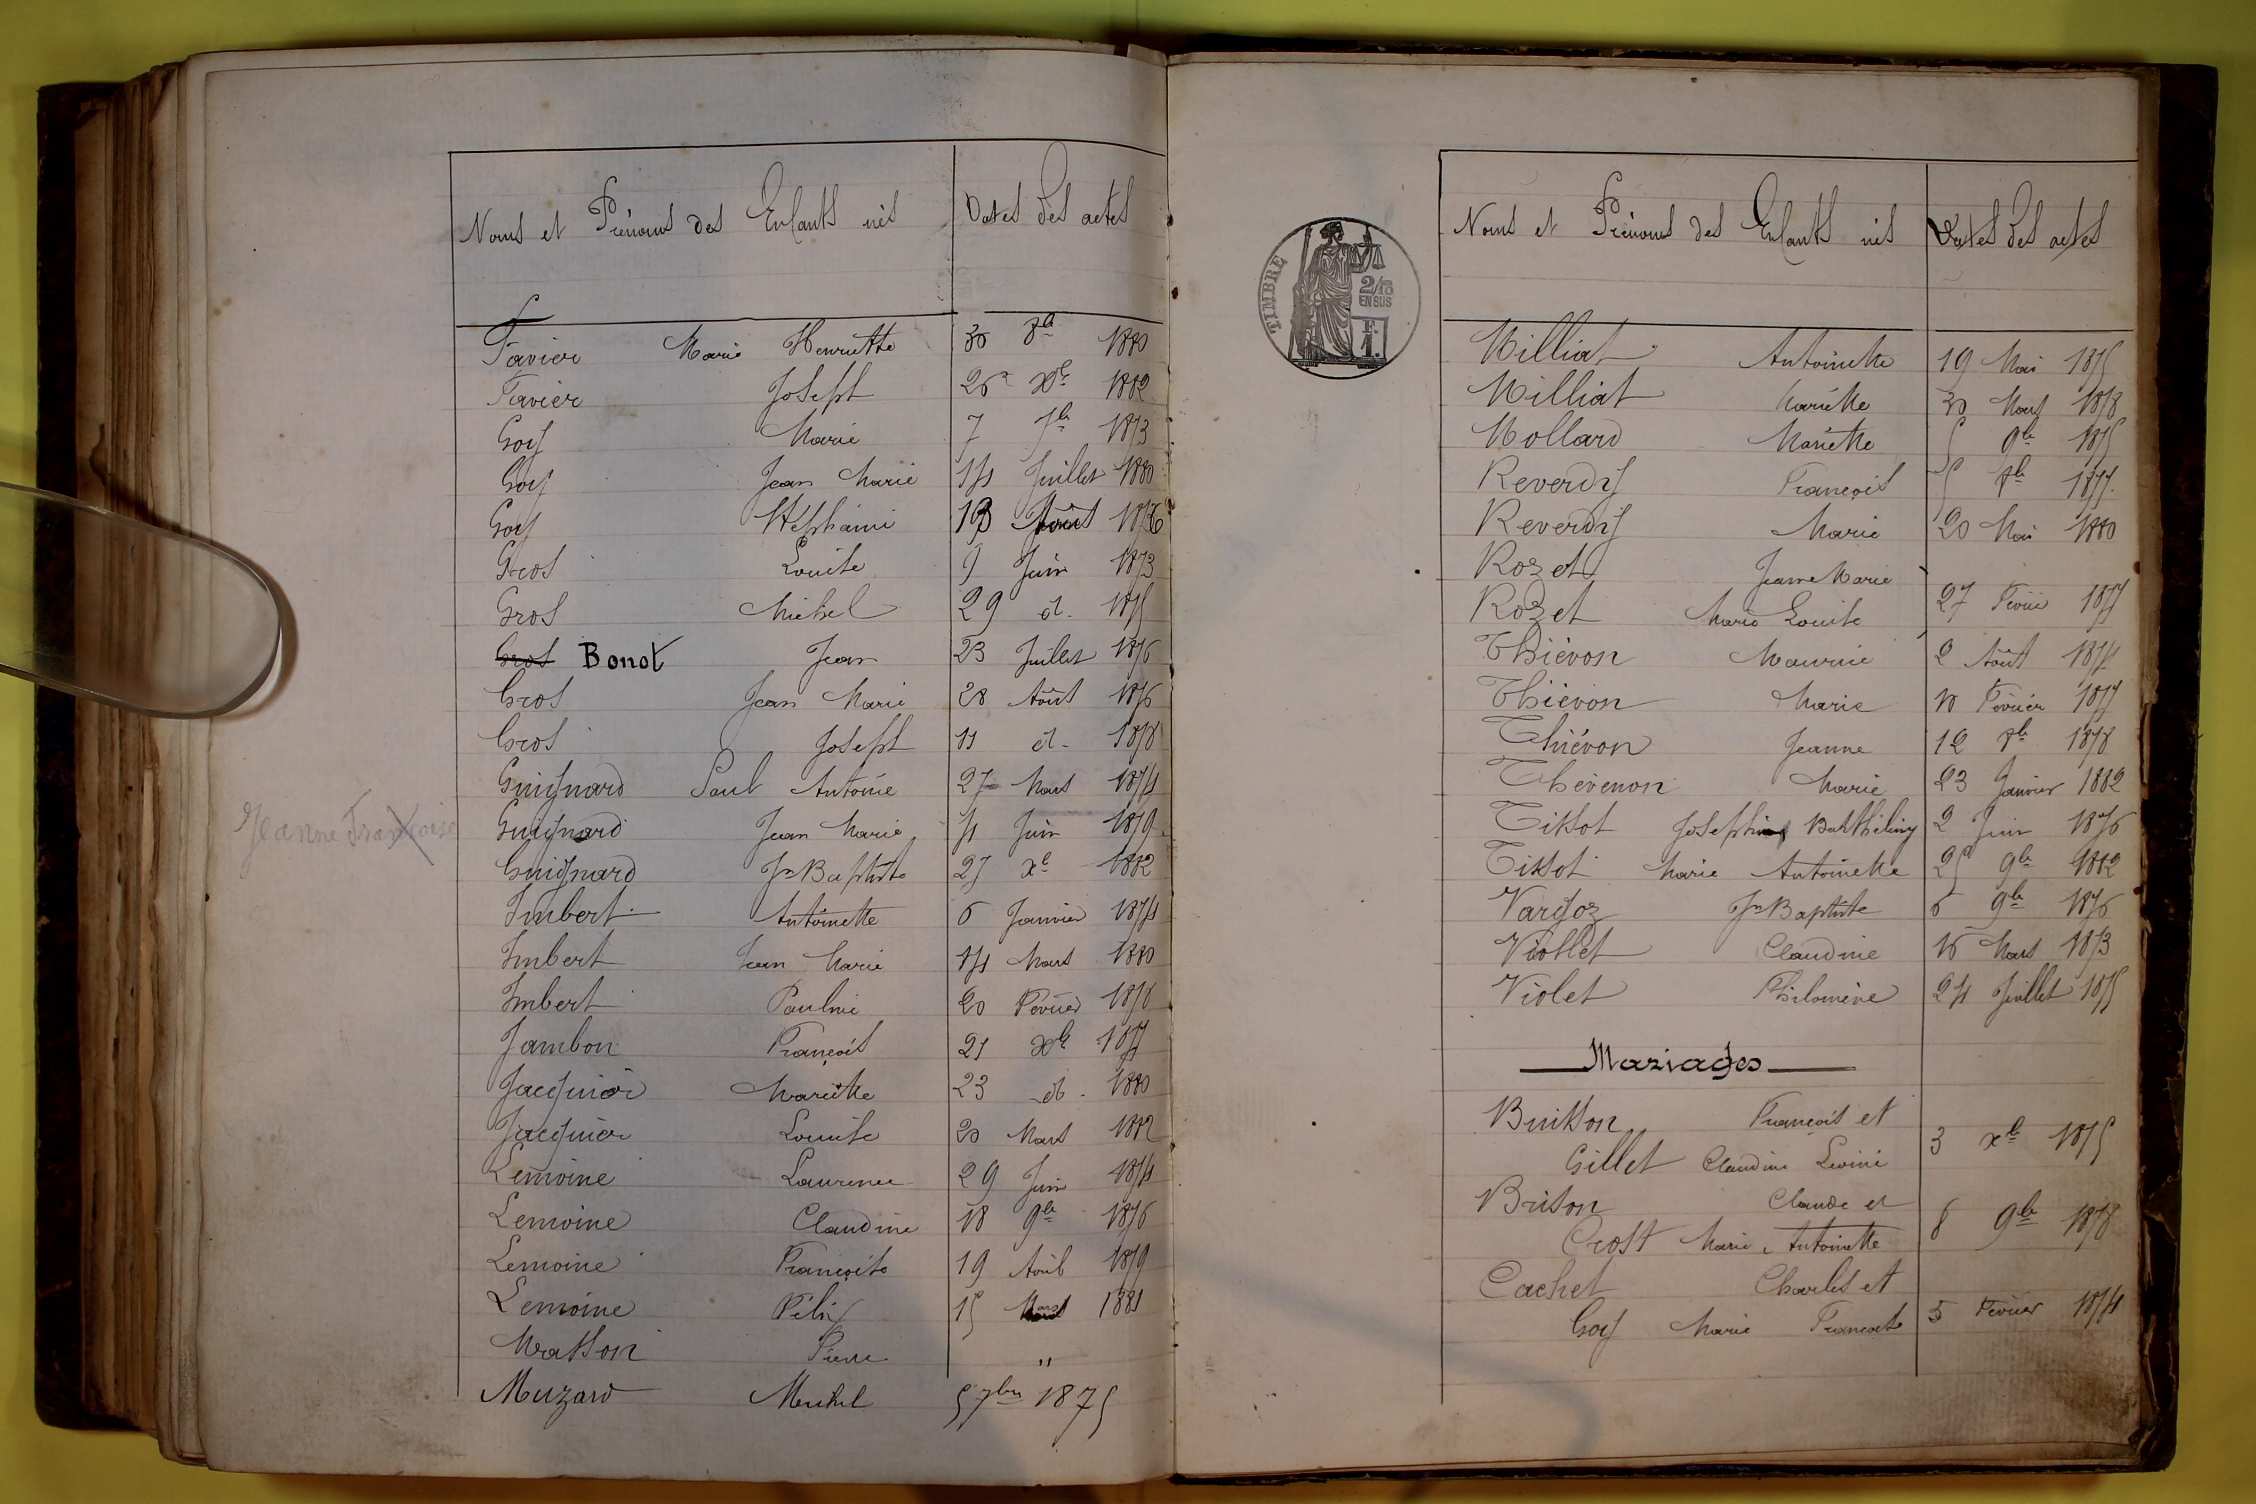 Noms et Prénoms des Enfants nés Dates des actes
Favier Marie Henriette 30 8b 1880
Favier Joseph 26 Xbe 1882
Goy Marie 7 7be 1873
Goy Jean Marie 14 Juillet 1880
Goy Stéphanie Août 1876
Gros Louise 9 Juin 1873
Gros Michel 29 d. 1875
Gros Bonot Jean 23 Juillet 1876
Gros Jean Marie 28 Août 1876
Gros Joseph 11 d. 1878
Guignard Paul Antoine 27 Mars 1874
Jeanne Françoise
Guignard Jean Marie 4 Juin 1879
Guignard Jn Baptiste 27 Xe 1882
Imbert Antoinette 6 Janvier 1874
Imbert Jean Marie 14 Mars 1880
Imbert Pauline 20 Février 1878
Jambon François 21 Xbe 1877
Jacquier Mariette 23 d. 1880
Jacquier Louise 20 Mars 1882
Lemoine Laurence 29 Juin 1874
Lemoine Claudine 18 9be 1876
Lemoine Françoise 19 Avril 1879
Lemoine Félix 15 Mars 1881
Masson Pierre "
Muzard Michel 5 7bre 1875
TIMBRE
2/10
EN SUS
F.
1.
Noms et Prénoms des Enfants nés Dates des actes
Milliat Antoinette 19 Mai 1875
Milliat Mariette 30 Mars 1878
Mollard Mariette 5 9be 1875
Reverdy François 5 8be 1877
Reverdy Marie 20 Mai 1880
Rozet Jeanne Marie
Rozet Marie Louise 27 Févier 1877
Thiévon Maurice 2 Août 1874
Thiévon Marie 10 Février 1877
Thiévon Jeanne 12 8be 1878
Thévenon Marie 23 Janvier 1882
Tissot Joseph Barthélémy 2 Juin 1876
Tissot Marie Antoinette 25 9be 1882
Vargoz Jn Baptiste 6 9be 1876
Viollet Claudine 16 Mars 1873
Violet Philomène 24 Juillet 1875
Mariages
Buisson François et
Gillet Claudine 3 Xbe 1875
Brison Claude et
Crost Marie Antoinette 8 9be 1878
Cachet Charles et
Goy Marie Françoise 5 Février 1874